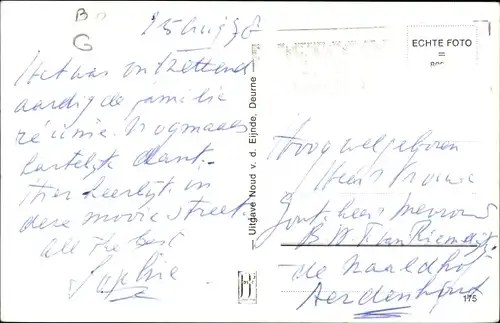 B
G
15 Aug
Het was ontzettend
aardig de familie
réunie. Nogmaals
hartelijk dank.
Hier heerlijk in
deze mooie streek
All the best
Sophie
Uitgave Noud v. d. Eijnde, Deurne
ECHTE FOTO
=
Hoogwelgeboren
Heer
Jonkheer
van Riemsdijk
de Naaldhof
Aerdenhout
175